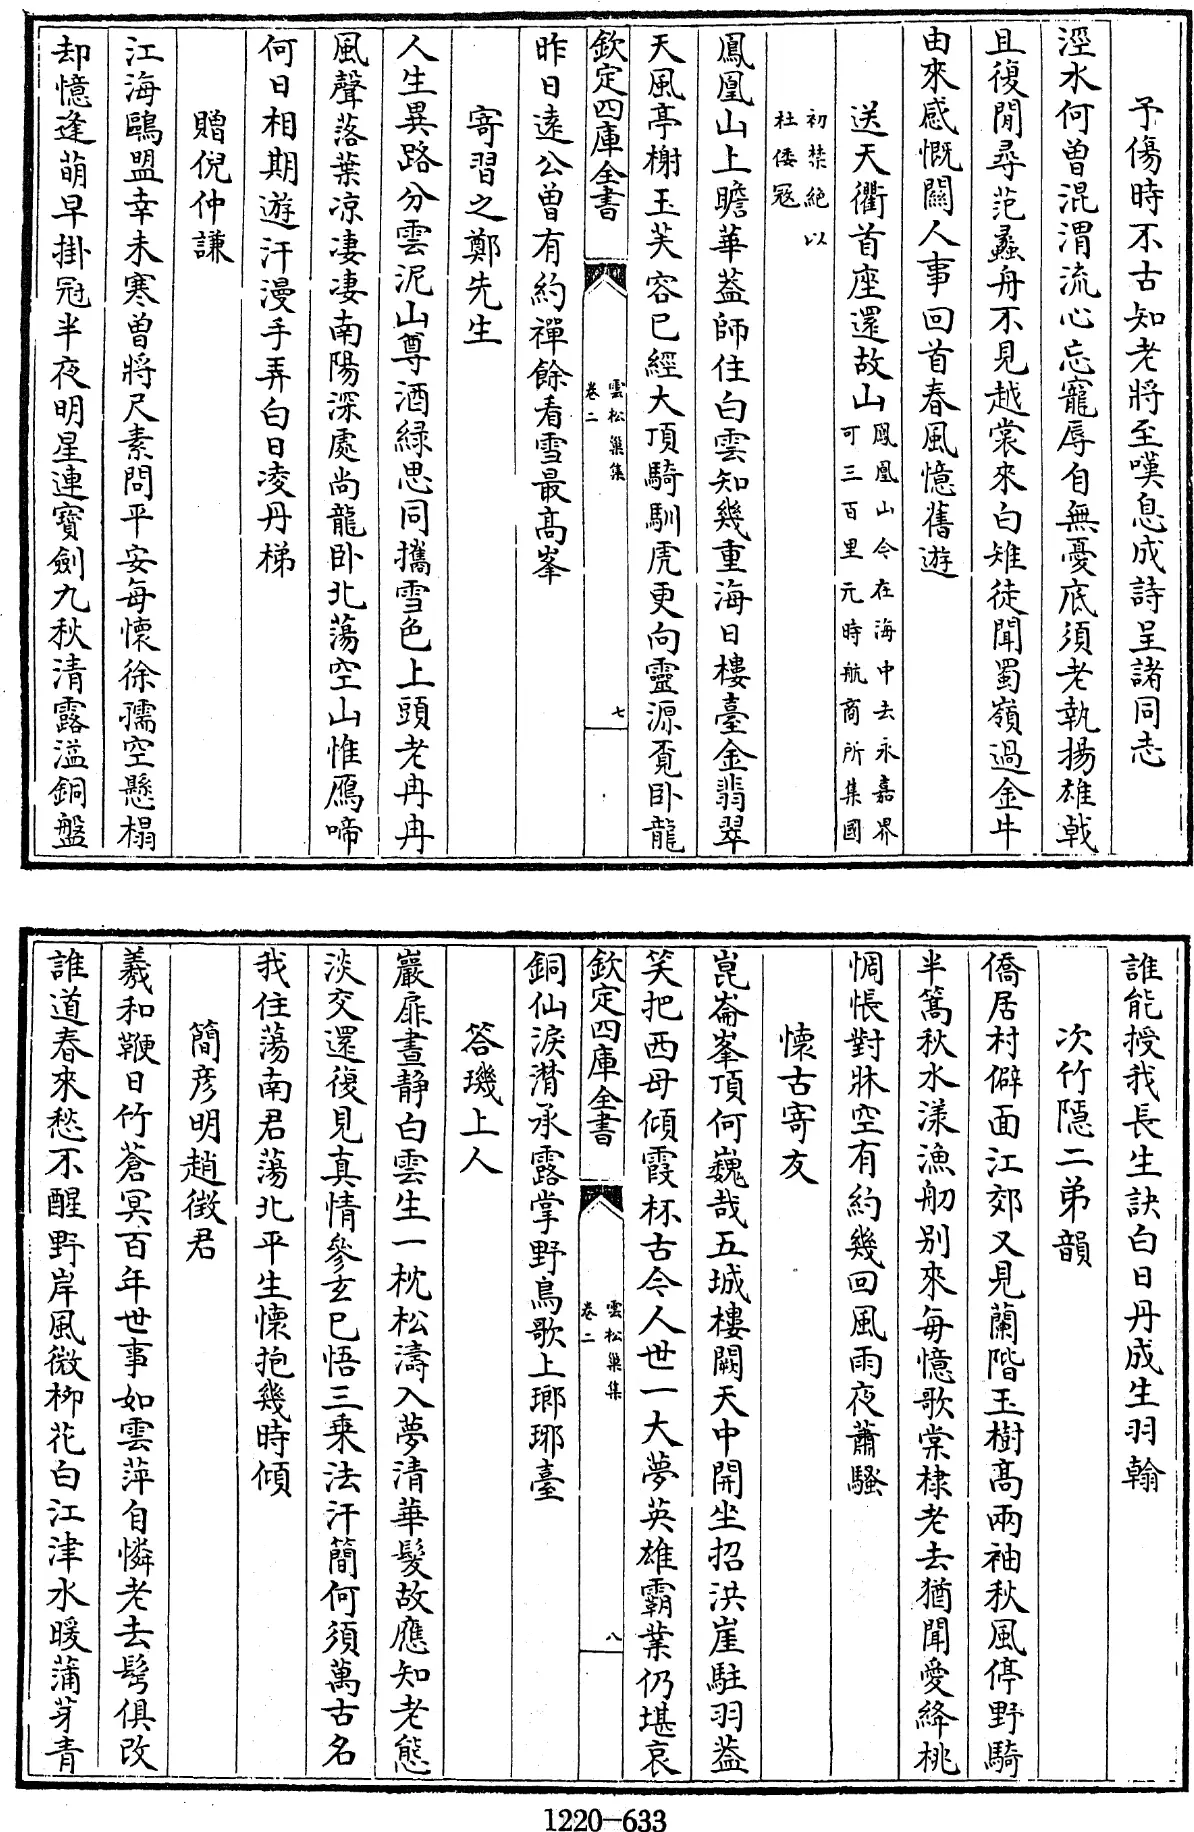 予傷時不古知老將至嘆息成詩呈諸同志
涇水何曾混渭流心忘寵辱自無憂底須老執揚雄戟
且復閒尋范蠡舟不見越裳來白雉徒聞蜀嶺過金牛
由來感慨關人事回首春風憶舊遊
送天衢首座還故山鳳凰山今在海中去永嘉界
可三百里元時航商所集國
初禁絕以
杜倭寇
鳳凰山上瞻華蓋師住白雲知幾重海日樓臺金翡翠
天風亭榭玉芙容已經大頂騎馴虎更向靈源覔卧龍
欽定四庫全書
雲松巢集
卷二
七
昨日遠公曾有約禪餘看雪最高峯
寄習之鄭先生
人生異路分雲泥山尊酒綠思同攜雪色上頭老冉冉
風聲落葉凉凄凄南陽深處尚龍卧北蕩空山惟鴈啼
何日相期遊汗漫手弄白日凌丹梯
贈倪仲謙
江海鷗盟幸未寒曾將尺素問平安每懷徐孺空懸榻
却憶逄萌早掛冠半夜明星連寶劍九秋清露溢銅盤
誰能授我長生訣白日丹成生羽翰
次竹隱二弟韻
僑居村僻面江郊又見蘭階玉樹高兩袖秋風停野騎
半篙秋水漾漁舠別來每憶歌棠棣老去猶聞愛絳桃
惆悵對牀空有約幾回風雨夜蕭騷
懷古寄友
崑崙峯頂何巍哉五城樓闕天中開坐招洪崖駐羽蓋
笑把西母傾霞杯古今人世一大夢英雄霸業仍堪哀
欽定四庫全書
雲松巢集
卷二
八
銅仙淚潸承露掌野鳥歌上瑯琊臺
答璣上人
巖扉晝靜白雲生一枕松濤入夢清華髮故應知老態
淡交還復見真情參玄已悟三乗法汗簡何須萬古名
我住蕩南君蕩北平生懷抱幾時傾
簡彥明趙徵君
羲和鞭日竹蒼冥百年世事如雲萍自憐老去髩俱改
誰道春來愁不醒野岸風微栁花白江津水暖蒲芽青
1220-633